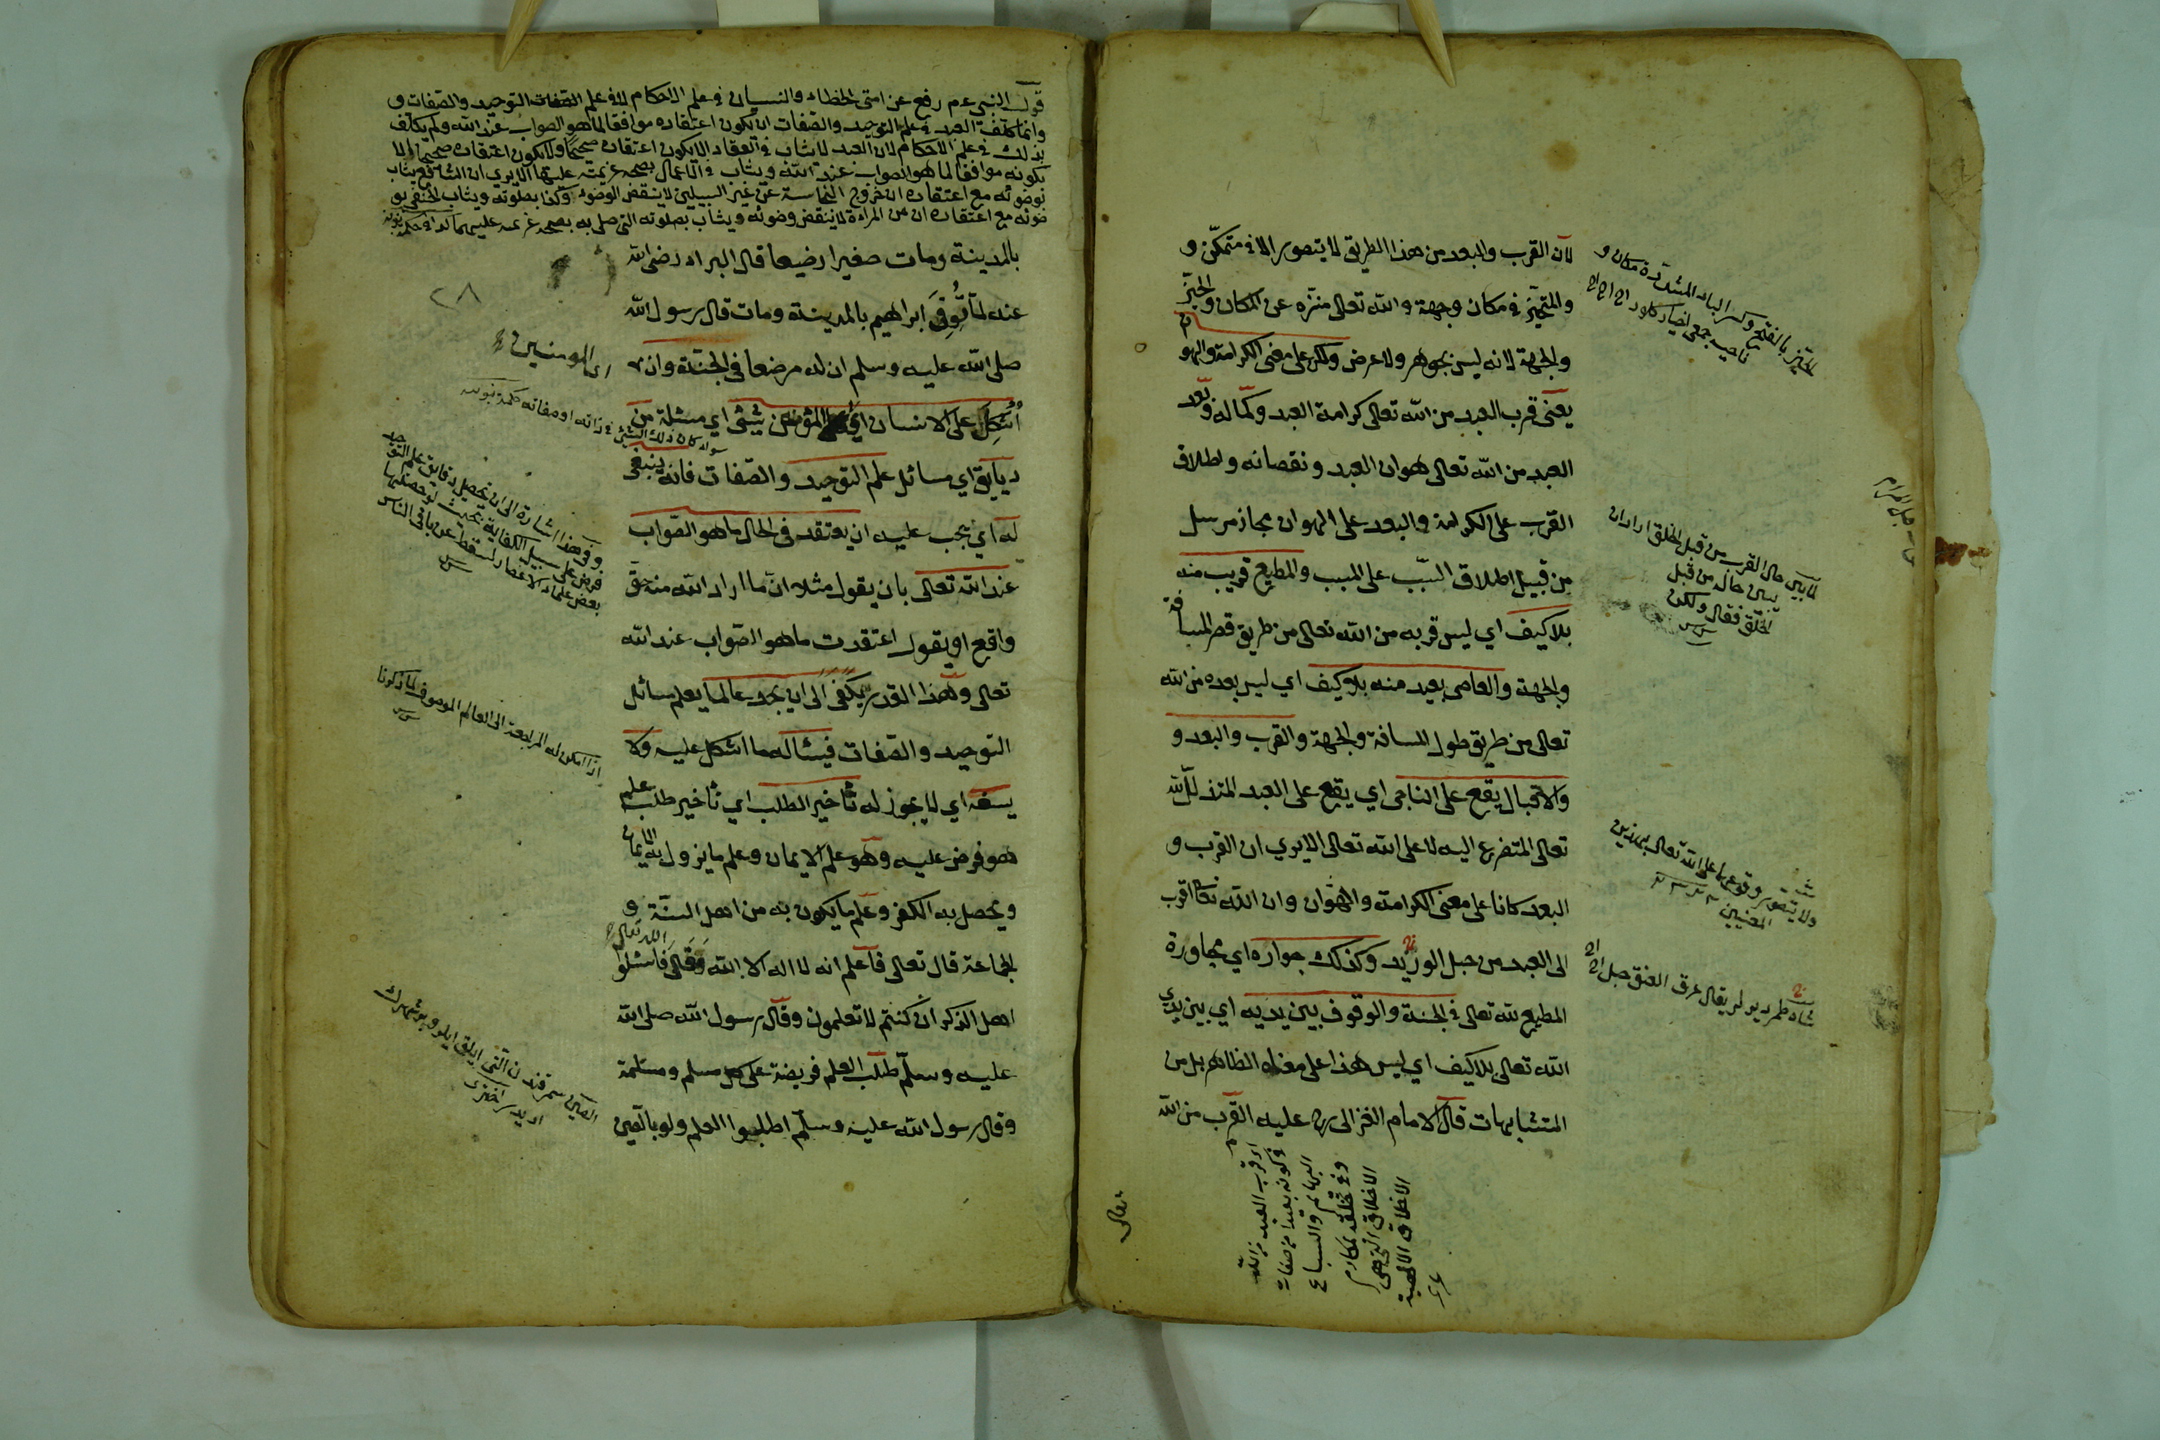 لان القرب والبعد من هذا الطريق لا يتصور الا في متمكن و
والمتحيز في مكان وجهة والله تعالى منزه عن المكان والحيز
والجهة لانه ليس بجوهر ولا عرض ولكن على معنى الكرامة والهوان
يعنى قرب العبد من الله تعالى كرامة العبد وكماله وبعد
العبد من الله تعالى هوان العبد ونقصانه واطلاق
القرب على الكرامة والبعد على الهوان مجاز مرسل
من قبيل اطلاق السبب على المسبب والمطيع قريب منه
بلا كيف اي ليس قربه من الله تعالى من طريق قصر المسافة
والجهة والعاصى بعيد منه بلا كيف اي ليس بعده من الله
تعالى من طريق طول المسافة والجهة والقرب والبعد و
والاقبال يقع على المناجى اي يقع على العبد المتذلل لله
تعالى المتضرع اليه لا على الله تعالى الا يرى ان القرب و
البعد كانا على معنى الكرامة والهوان وان الله تعالى اقرب
الى العبد من حبل الوريد وكذلك جواره اي مجاورة
المطيع لله تعالى في الجنة والوقوف بين يديه اي بين يدي
الله تعالى بلا كيف اي ليس هذا على معناه الظاهر بل من
المتشابهات قال الامام الغزالى رح عليه القرب من الله
تعالى
الحيز بالفتح وكسر الياء المشددة مكان و
ناحيه جمعى احياز كلور
لما بين حال القرب من قبل الخلق اراد ان
يبين حاله من قبل
الخلق فقال ولكن
ولا يتصور وقوعها على الله تعالى بهذين
المعنيين
شاه طمر ديو لر يقال عرق العنق حبل
اي قرب العبد من الله
وكونه بعيدا من صفات
البهائم والسباع
وفي تخلقه بمكارم
الاخلاق التي هي
الاخلاق الالهية
قول النبي عم رفع عن امتى الخطاء والنسيان في علم الاحكام لا في علم التوحيد والصفات و
وانما كلف العبد في علم التوحيد والصفات ان يكون اعتقاده موافقا لما هو الصواب عند الله ولم يكلف
بذلك في علم الاحكام لان العبد لا يثاب في العقاد الا يكون اعتقاده صحيحا ولا يكون اعتقاده صحيحا الا
بكونه موافقا لما هو الصواب عند الله ويثاب في الاعمال بصحة عزيمته عليها الا يرى ان الشافعي يثاب
بوضوئه مع اعتقاده ان خروج النجاسة عن غير السبيلين لا ينقض الوضوء وكذا بصلوته ويثاب الحنفي بو
ضوئه مع اعتقاده ان مس المراءة لا ينقض وضوئه ويثاب بصلوته التى صلى به بصحة عزيمته عليهما
بالمدينة ومات صغيرا رضيعا قال البراء رضى الله
عنه لما توفى ابراهيم بالمدينة ومات قال رسول الله
صلى الله عليه وسلم ان له مرضعا فى الجنة وان
اشكل على الانسان اي المؤمن شئ اي مسئلة من
دقايق اي مسائل علم التوحيد والصفات فانه ينبغى
له اي يجب عليه ان يعتقد فى الحال ما هو الصواب
عند الله تعالى بان يقول مثلا ان ما اراد الله منه حق
واقع او يقول اعتقدت ما هو الصواب عند الله
تعالى وهذا القدر يكفى الى ان يجد عالما يعلم مسائل
التوحيد والصفات فيسئاله ما اشكل عليه ولا
يسعه اي لا يجوز له تأخير الطلب اي تأخير طلب علم
هو فرض عليه وهو علم الايمان وعلم ما يزول به الايمان
ويحصل به الكفر وعلم ما يكون به من اهل السنة و
الجماعة قال تعالى فاعلم انه لا اله الا الله وقال الله تعالى فاسئلوا
اهل الذكر ان كنتم لا تعلمون وقال رسول الله صلى الله
عليه وسلم طلب العلم فريضة على كل مسلم ومسلمة
وقال رسول الله عليه وسلم اطلبوا العلم ولو بالصين
٢٨
اي المومنين
سواء كان ذلك الشئ في ذاته او صفاته
وفي هذا اشارة الى ان تحصيل دقايق علم التوحيد
فرض على سبيل الكفاية بحيث لو حصلها
بعض علماء الاعصار لسقط عن باقى الناس
اذا امكن له المراجعة الى العالم الموصوف لما ذكرنا
الصين سمرقندن التى ايلق ايلرو بر شهردر